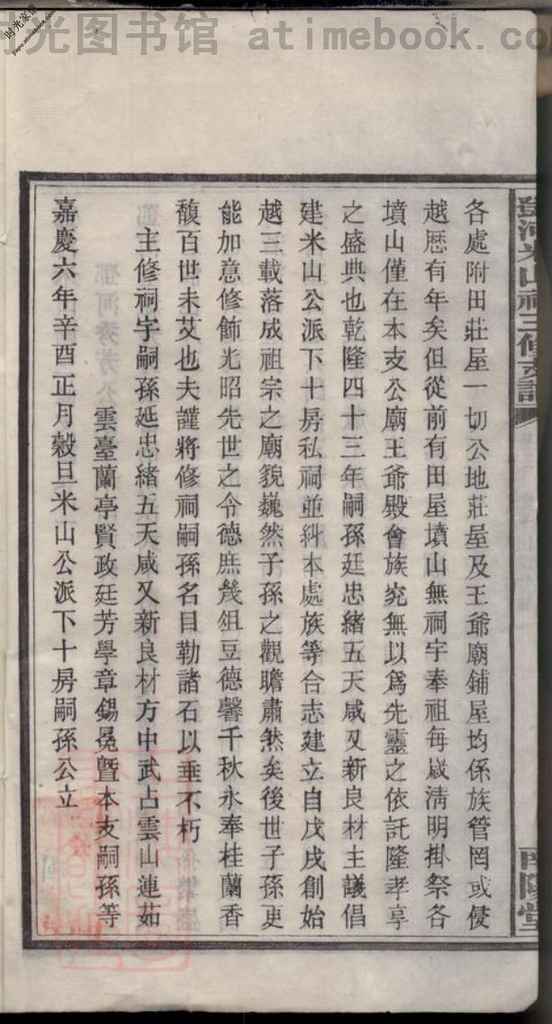 时光图书馆 atimebook.com
鄧河米山祠三修支譜
南陽堂
各處附田莊屋一切公地莊屋及王爺廟鋪屋均係族管罔或侵
越歷有年矣但從前有田屋墳山無祠宇奉祖每歲淸明掛祭各
墳山僅在本支公廟王爺殿會族究無以爲先靈之依託隆孝享
之盛典也乾隆四十三年嗣孫廷忠緒五天咸又新良材主議倡
建米山公派下十房私祠並糾本處族等合志建立自戊戌創始
越三載落成祖宗之廟貌巍然子孫之觀瞻肅然矣後世子孫更
能加意修飾光昭先世之令德庶幾俎豆德馨千秋永奉桂蘭香
馥百世未艾也夫謹將修祠嗣孫名目勒諸石以垂不朽
主修祠宇嗣孫延忠緒五天咸又新良材方中武占雲山連茹
雲臺蘭亭賢政廷芳學章錫冕曁本支嗣孫等
嘉慶六年辛酉正月穀旦米山公派下十房嗣孫公立